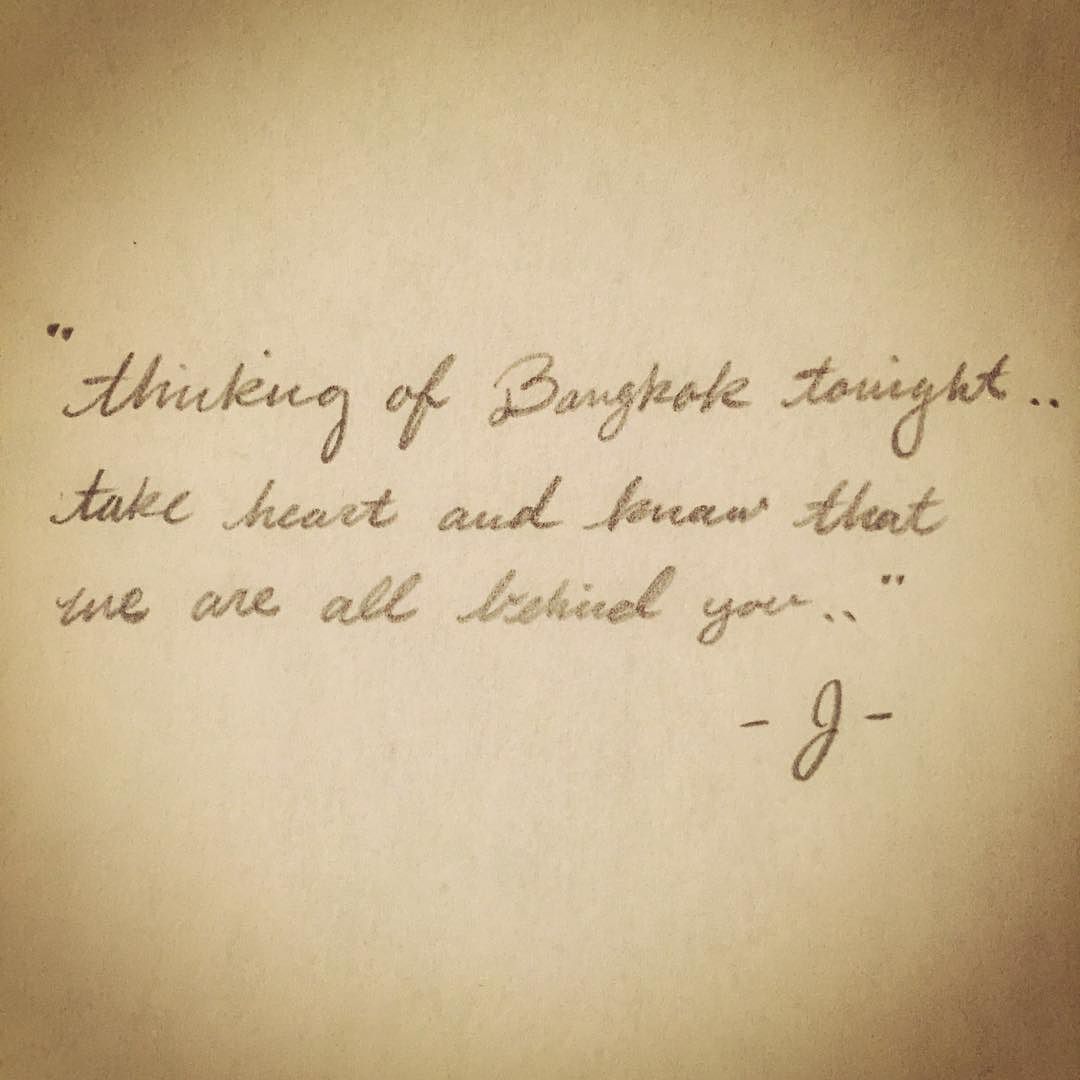 "thinking of Bangkok tonight..
take heart and know that
we are all behind you.."
- J -